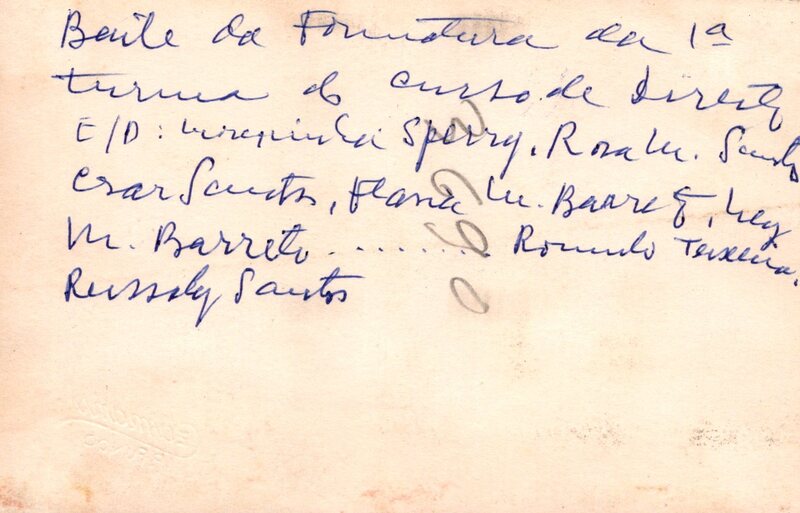 Baile da Formatura da 1ª
turma do curso de Direito
E/D: Sperry, Rosa M. Santos
Cesar Santos, Flavia M. Barreto, Ney
M. Barreto ........ Romulo Teixeira,
Santos
3690